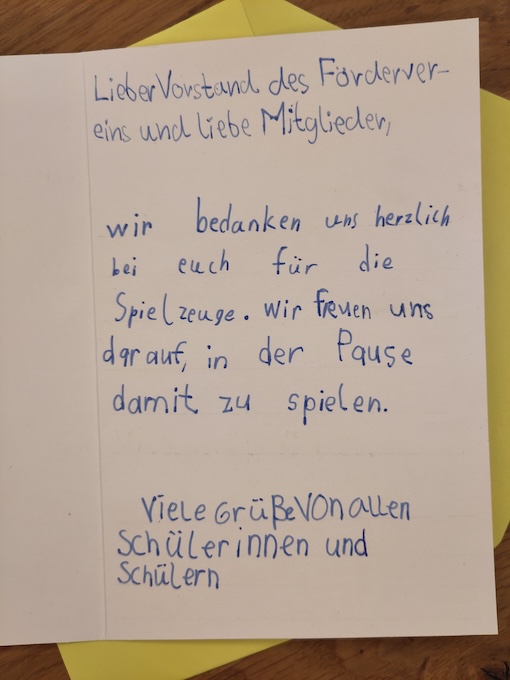 Lieber Vorstand des Förderver-
eins und liebe Mitglieder,
wir bedanken uns herzlich
bei euch für die
Spielzeuge. Wir freuen uns
darauf, in der Pause
damit zu spielen.
Viele Grüße von allen
Schülerinnen und
Schülern